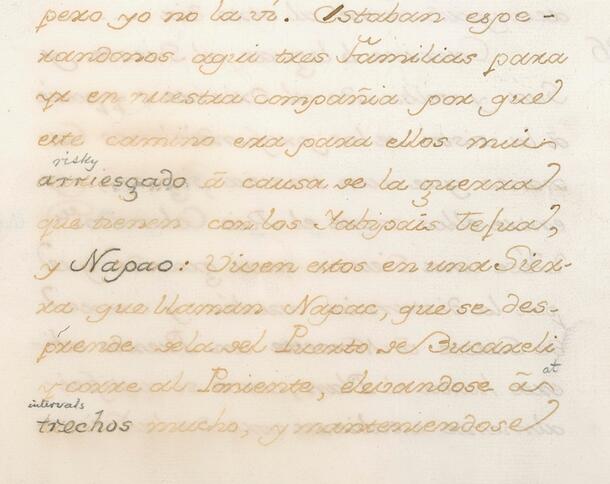 pero yo no la vi. Estaban espe-
randonos aqui tres Familias para
yr en nuestra compañia por que
este camino era para ellos mui
risky
arriesgado â causa de la guerra
que tienen con los Jabipais Tejua,
y Napao: Viven estos en una Sier-
ra que llaman Napac, que se des-
prende de la del Puerto de Bucareli
y corre al Poniente, elevandose â
at
intervals
trechos mucho, y manteniendose